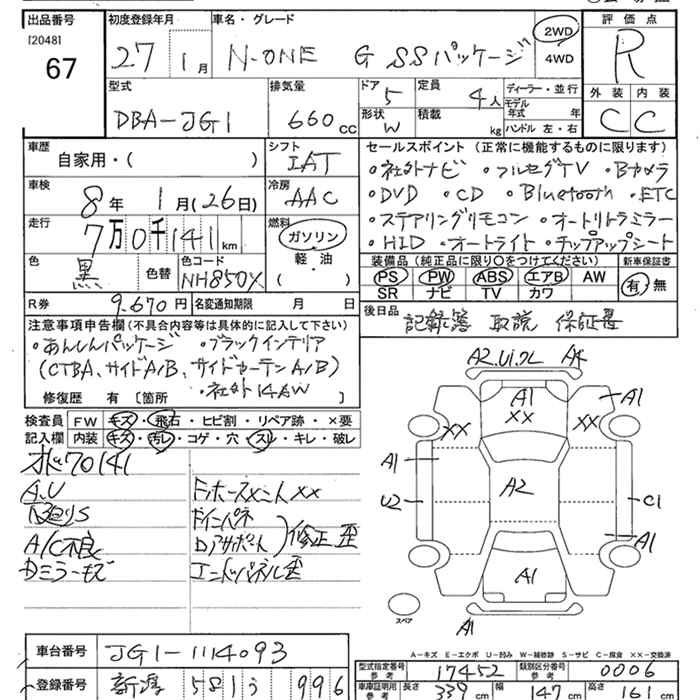 出品番号 初度登録年月 車名・グレード 評価点
[2048]
67
27 1月 N-ONE G SSパッケージ 2WD R
4WD
型式 排気量 ドア 定員 ディーラー・並行 外装 内装
DBA-JG1 660cc 5 4人 モデル年式 年 C C
形状 積載
W kg ハンドル 左・右
車歴 シフト セールスポイント (正常に機能するものに限ります)
自家用・( ) IAT ・社外ナビ ・フルセグTV ・Bカメラ
車検 冷房 ・DVD ・CD ・Bluetooth ・ETC
8年 1月(26日) AAC ・ステアリングリモコン ・オートリトラミラー
走行 燃料 ・HID ・オートライト ・チップアップシート
7万0千141km ガソリン
軽・油
( )
装備品 (純正品に限り○をつけてください) 新車保証書
色 色替 色コード PS PW ABS エアB AW 有 無
黒 NH850X SR ナビ TV カワ
R券 9,670円 名変通知期限 月 日 後日品
記録簿 取説 保証書
注意事項申告欄 (不具合内容等は具体的に記入して下さい)
・あんしんパッケージ ・ブラックインテリア
(CTBA、サイドA/B、サイドカーテンA/B)
・社外14AW
修復歴 有 [箇所
検査員記入欄 FW キズ・飛石・ヒビ割・リペア跡・×要
内装 キズ・汚レ・コゲ・穴・スレ・キレ・破レ
オド70141
A.U
A/C不良
Dミラーキズ
Fホースメント××
Fインパネ
Dアサポート 修正歪
エンドパネル歪
A2.U1. A4
A1 A1
×× ×× ××
A1
U2 A2 C1
A1
A1
A1
スペア
A-キズ E-エクボ U-凹み W-補修跡 S-サビ C-腐食 ××-交換済
車台番号 JG1-1114093 型式指定番号 参考 17452 類別区分番号 参考 0006
登録番号 新潟 581 う 996 車庫証明用 参考 長さ 339 幅 147 高さ 161